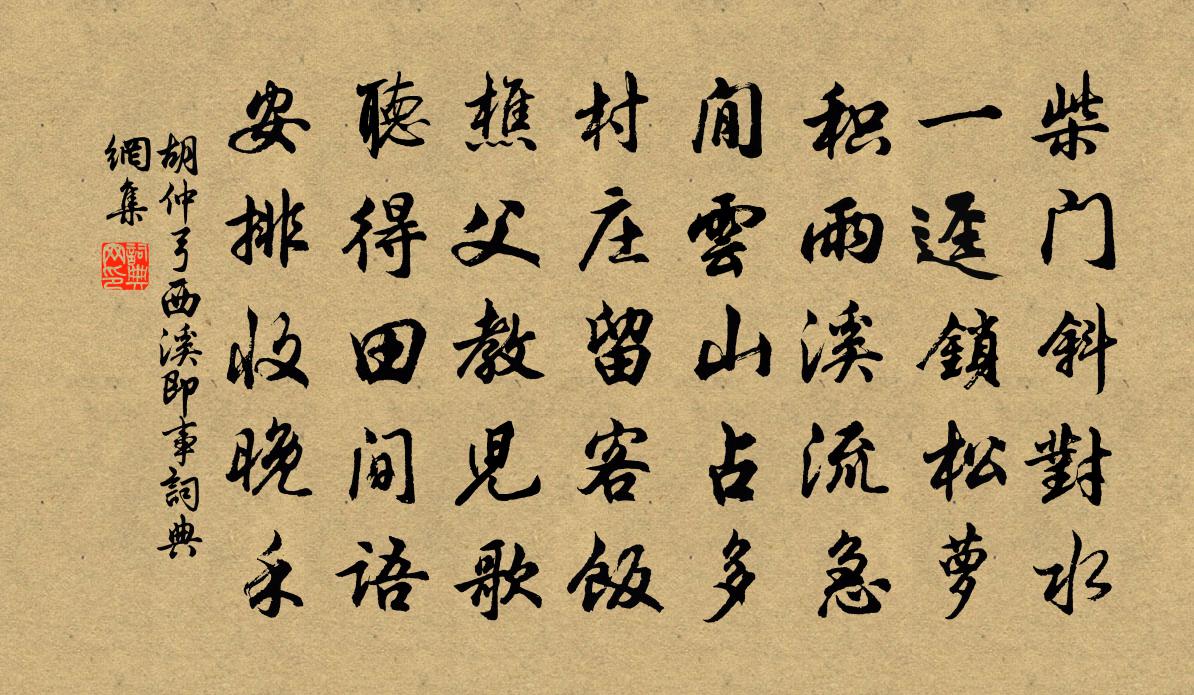 柴门斜對水
一逕鎖松萝
积雨溪流急
閒雲山占多
村庄留客飯
樵父教児歌
聽得田間語
安排收晚禾
胡仲弓西溪即事詞典
網集
詞典
网印